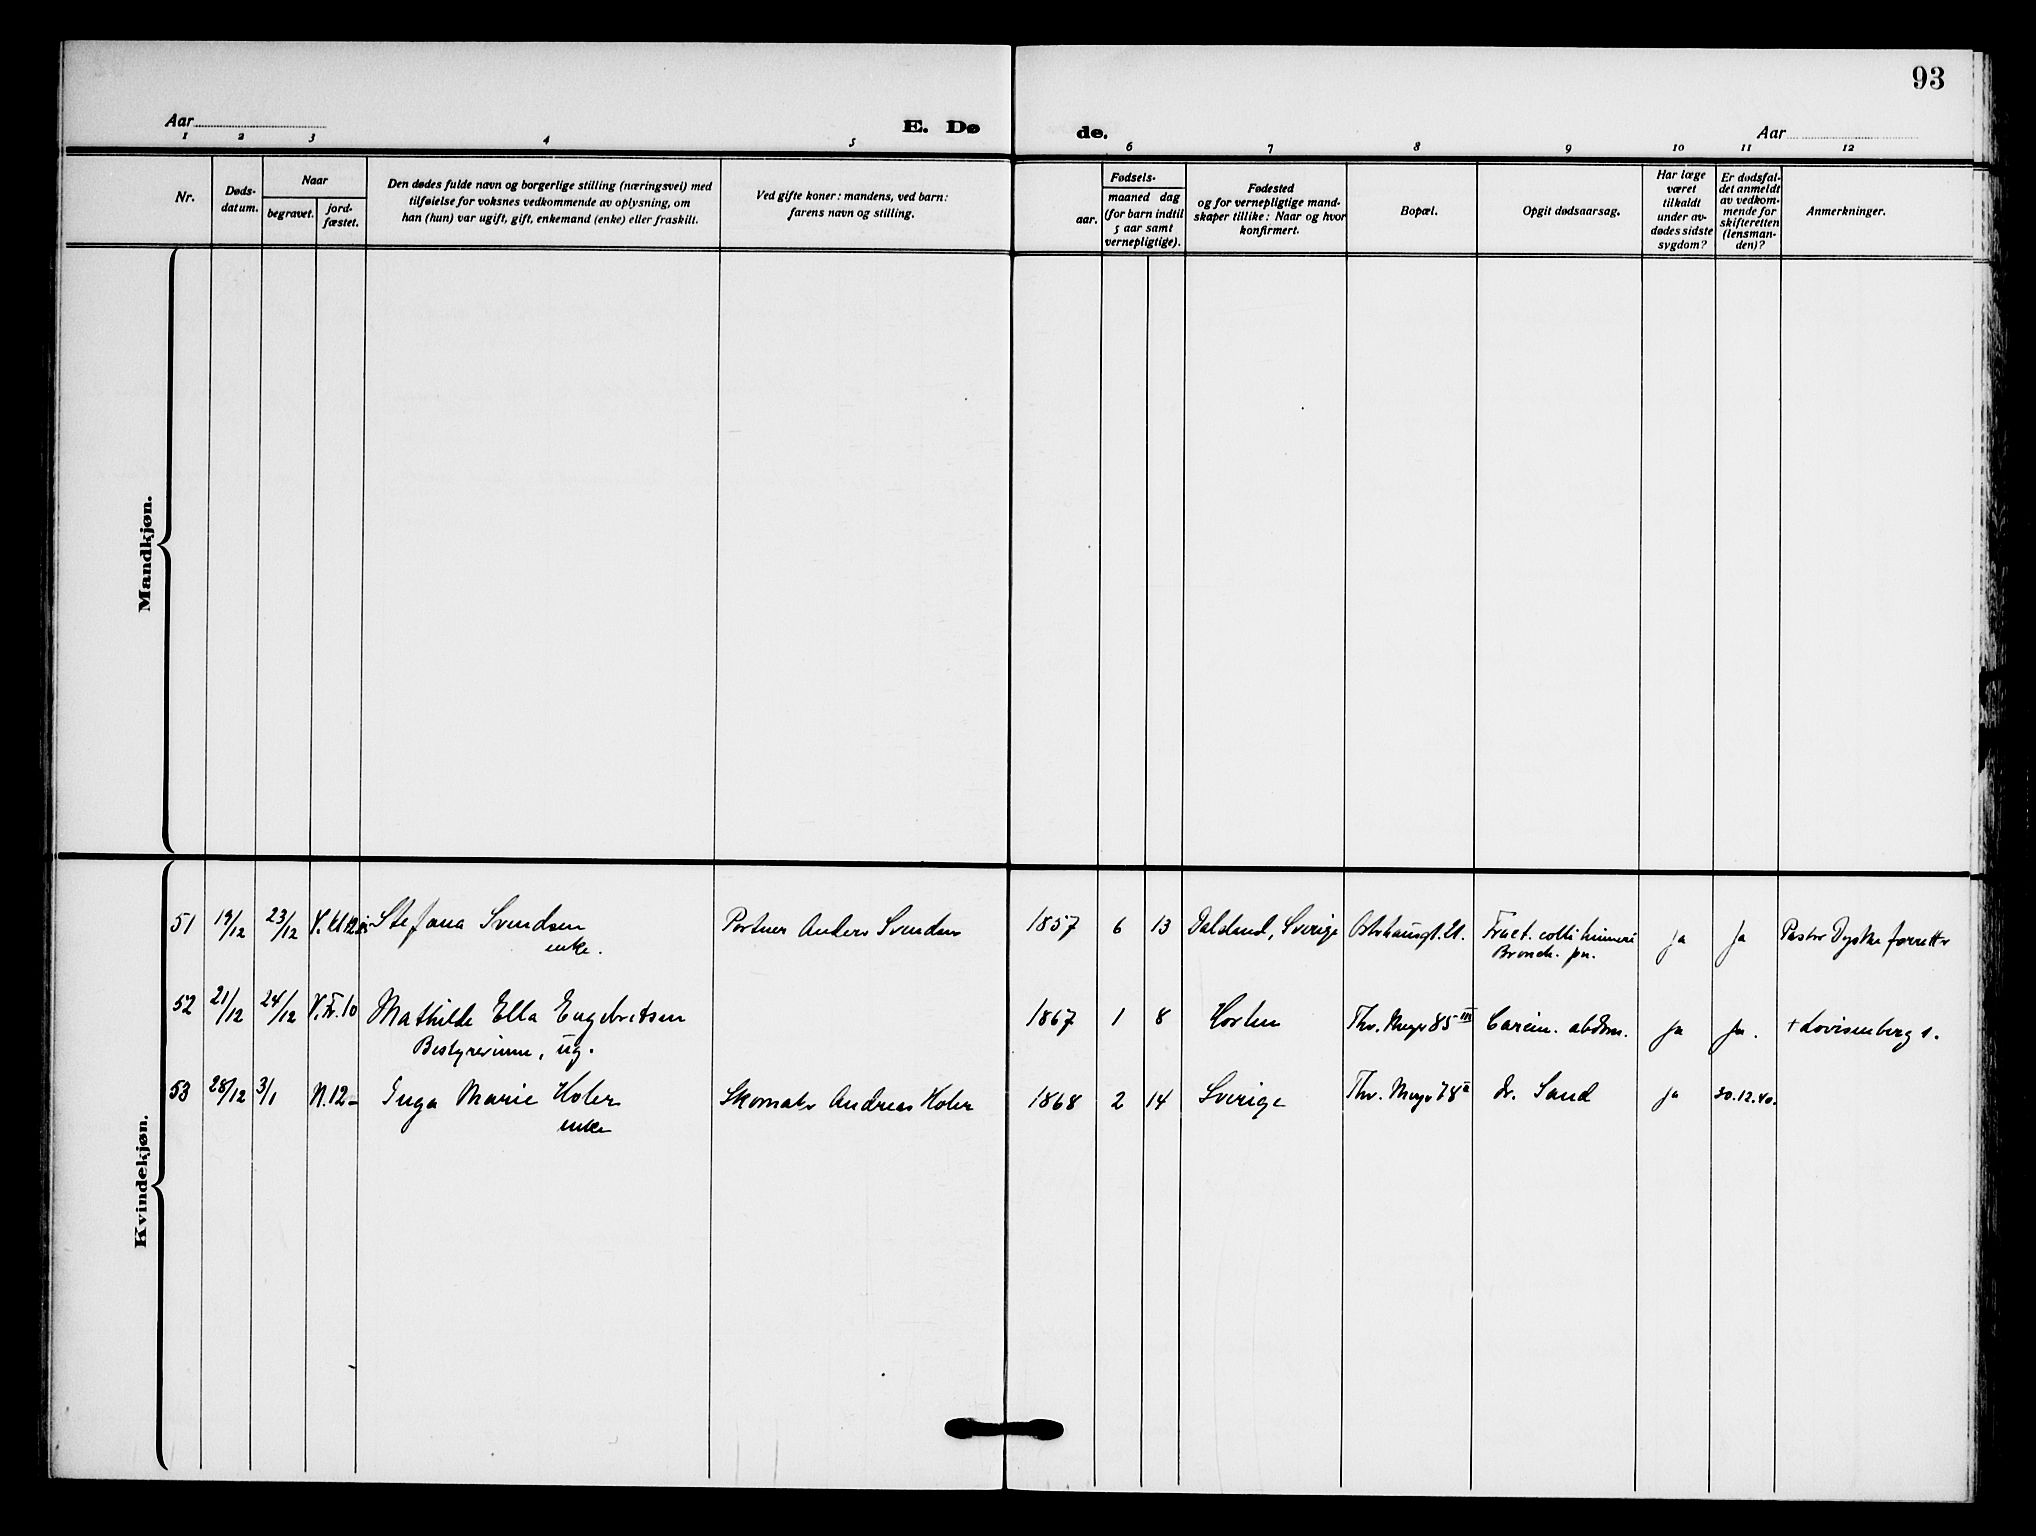 93
Aar
E. Dø
de.
Aar
1 2 3 4 5 6 7 8 9 10 11 12
Nr.
Døds-
datum.
Naar
begravet.
jord-
fæstet.
Den dødes fulde navn og borgerlige stilling (næringsvei) med
tilføielse for voksnes vedkommende av oplysning, om
han (hun) var ugift, gift, enkemand (enke) eller fraskilt.
Ved gifte koner: mandens, ved barn:
farens navn og stilling.
Fødsels-
aar.
maaned dag
(for barn indtil
5 aar samt
vernepligtige).
Fødested
og for vernepligtige mand-
skaper tillike: Naar og hvor
konfirmert.
Bopæl.
Opgit dødsaarsag.
Har læge
været
tilkaldt
under av-
dødes sidste
sygdom?
Er dødsfal-
det anmeldt
av vedkom-
mende for
skifteretten
(lensman-
den)?
Anmerkninger.
Mandkjøn.
Kvindekjøn.
51 19/12 23/12 V. kl 12 Stefana Svendsen Portner Anders Svendsen 1857 6 13 Dalsland, Sverige 21. Fract. colli humeri ja Ja Pastor
enke. Bronch. pn.
52 21/12 24/12 V. Fr. 10 Mathilde Ella Engebretsen 1867 1 8 Horten Thv. Meyer 85 III Carcin. abdom. ja Ja. + Lovisenberg s.
Bestyrerinne, ug.
53 28/12 3/1 N. 12 - Inga Marie Holer Skomaker Andreas Holer 1868 2 14 Sverige Thv. Meyer 78 II dr. Sand ja 30.12.40.
enke